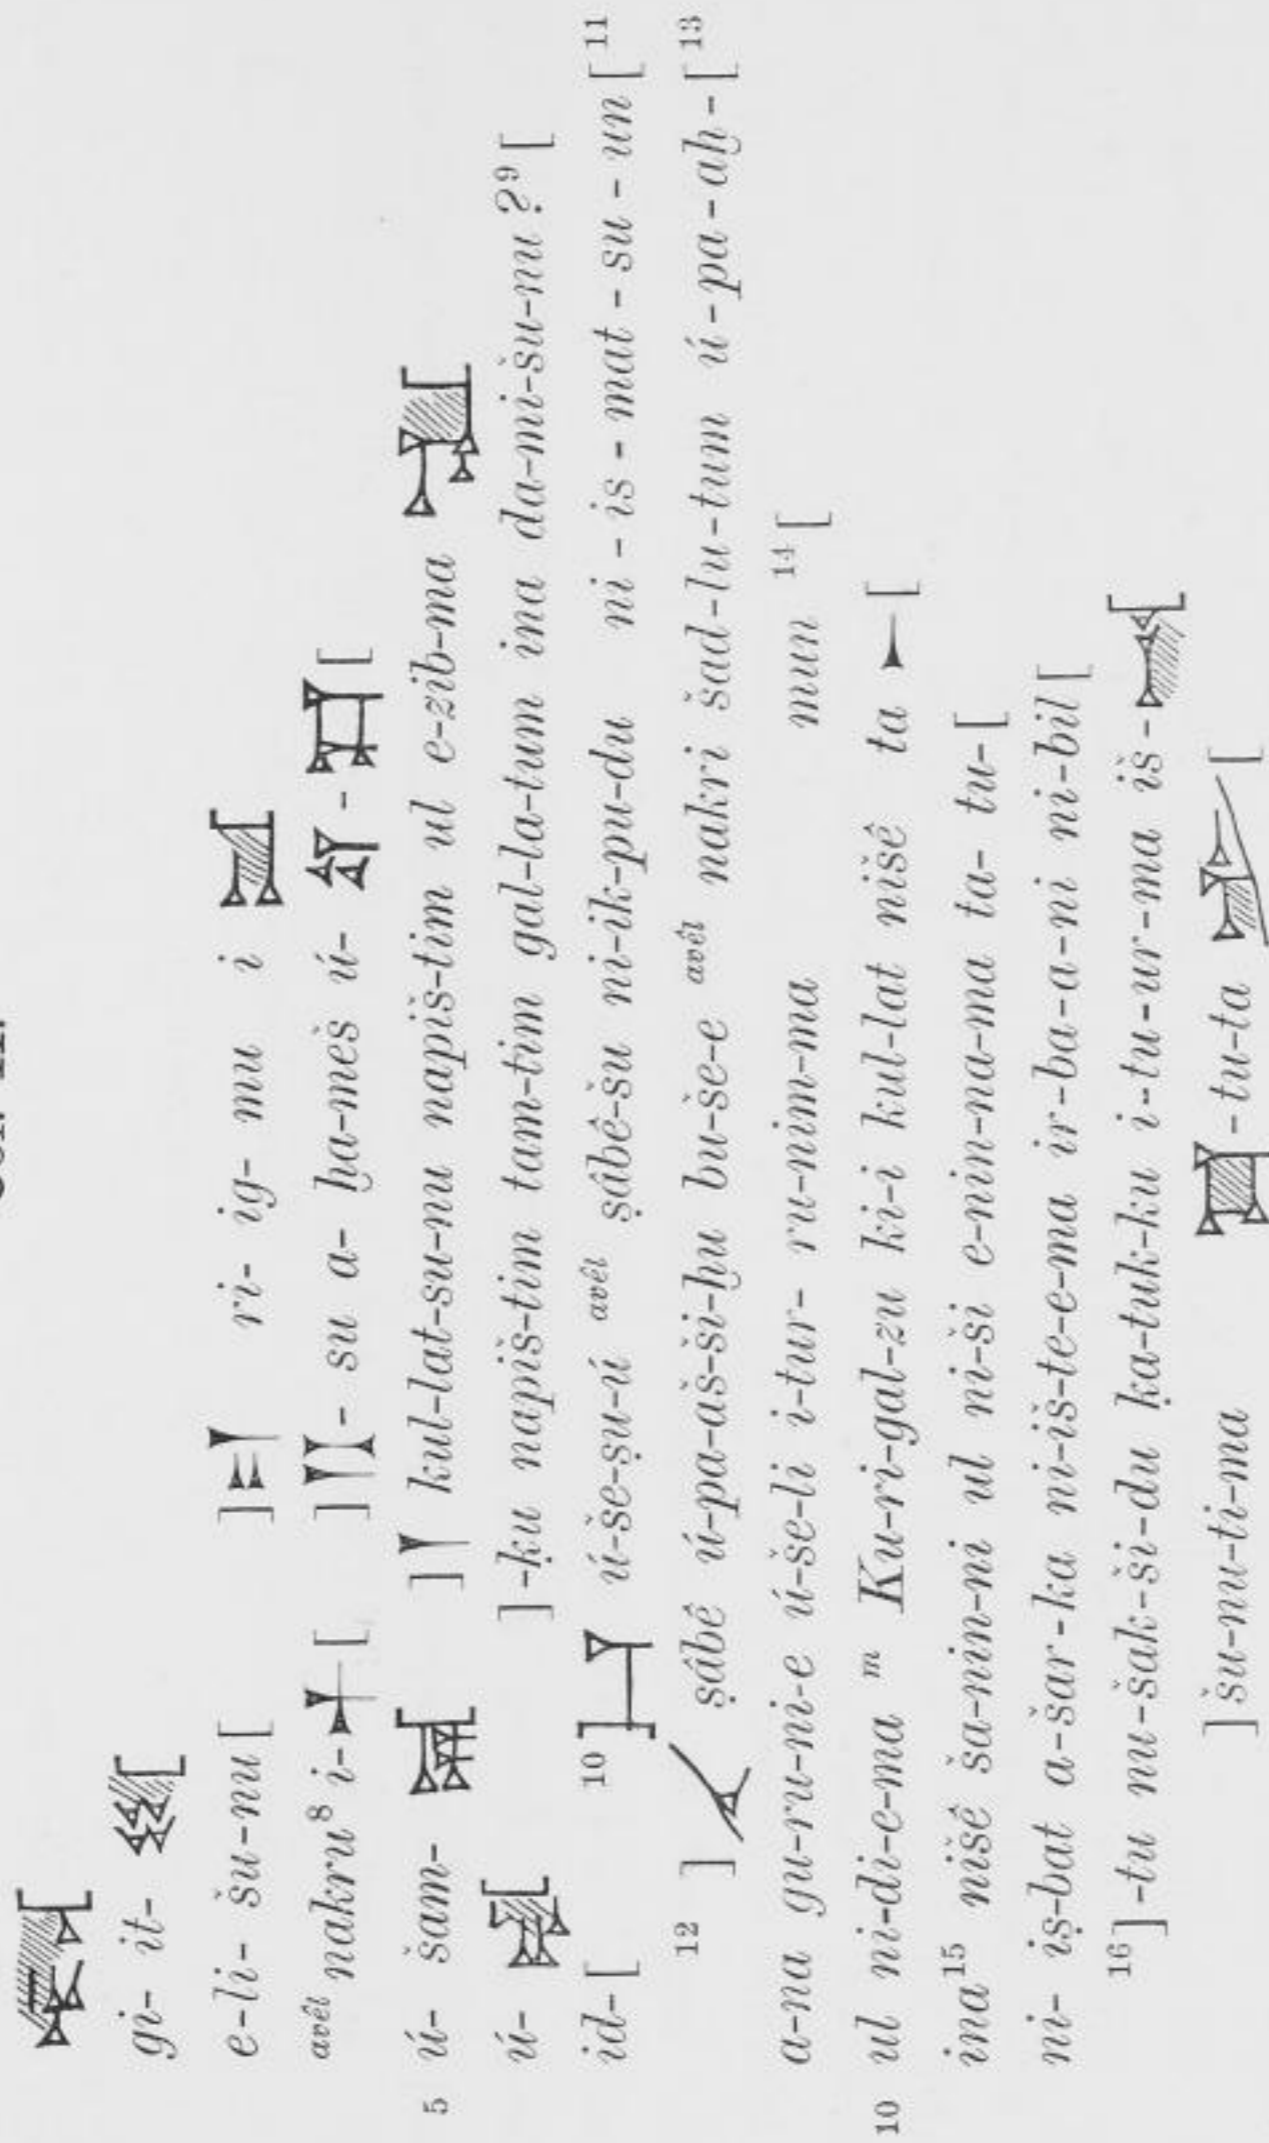 gi- it-
e-li- šu-nu [ ] ri- ig- mu i
avêl nakru⁸ i- [ ] - su a- ḫa-meš ú- - [
5 ú- šam- ] kul-lat-su-nu napiš-tim ul e-zib-ma
ú- [ ]-ḳu napiš-tim tam-tim gal-la-tum ina da-mi-šu-nu?⁹ [
id-[ ¹⁰] ú-še-ṣu-ú avêl ṣâbê-šu ni-ik-pu-du ni-is-mat-su-un [¹¹
¹² ] ṣâbê ú-pa-aš-ši-ḫu bu-še-e avêl nakri šad-lu-tum ú-pa-aḫ-[¹³
a-na gu-ru-ni-e ú-še-li i-tur- ru-nim-ma mun ¹⁴[
10 ul ni-di-e-ma m Ku-ri-gal-zu ki-i kul-lat nišê ta [
ina¹⁵ nišê ša-nin-ni ul ni-ši e-nin-na-ma ta- tu-[
ni- iṣ-bat a-šar-ka ni-iš-te-e-ma ir-ba-a-ni ni-bil [
¹⁶]-tu nu-šak-ši-du ḳa-tuk-ku i-tu-ur-ma iš- [
] šu-nu-ti-ma -tu-ta [